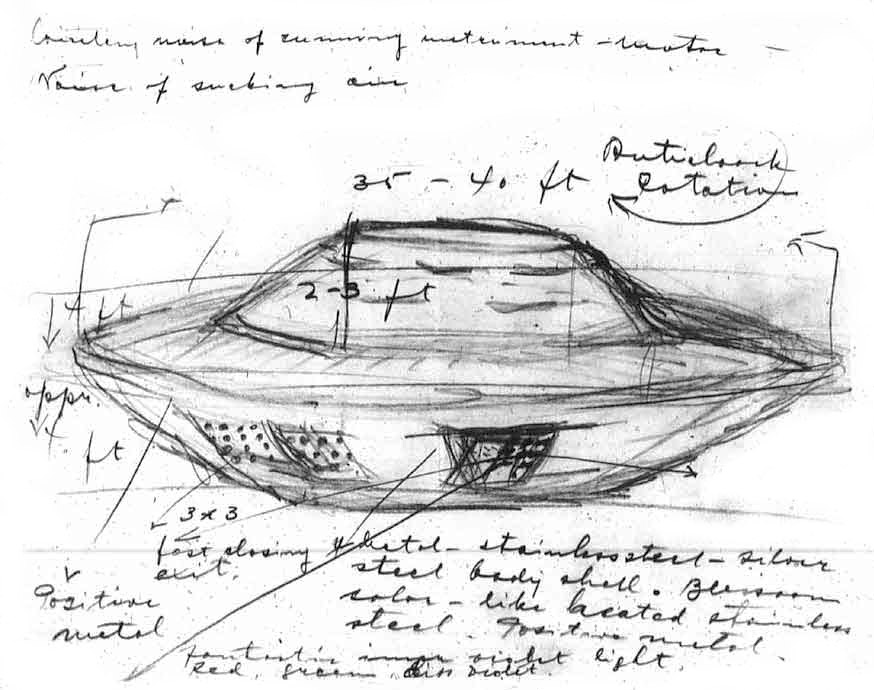 noise of running instrument - motor -
Noise of sucking air
Anticlock
35 - 40 ft
Rotation
2-3 ft
4 ft
appr.
4. ft
3x3
fast closing
exit.
Metal - stainless steel - silver
steel body shell.
color - like heated stainless
steel. Positive metal.
Positive
metal
fantastic inner violet light.
red, green, violet.